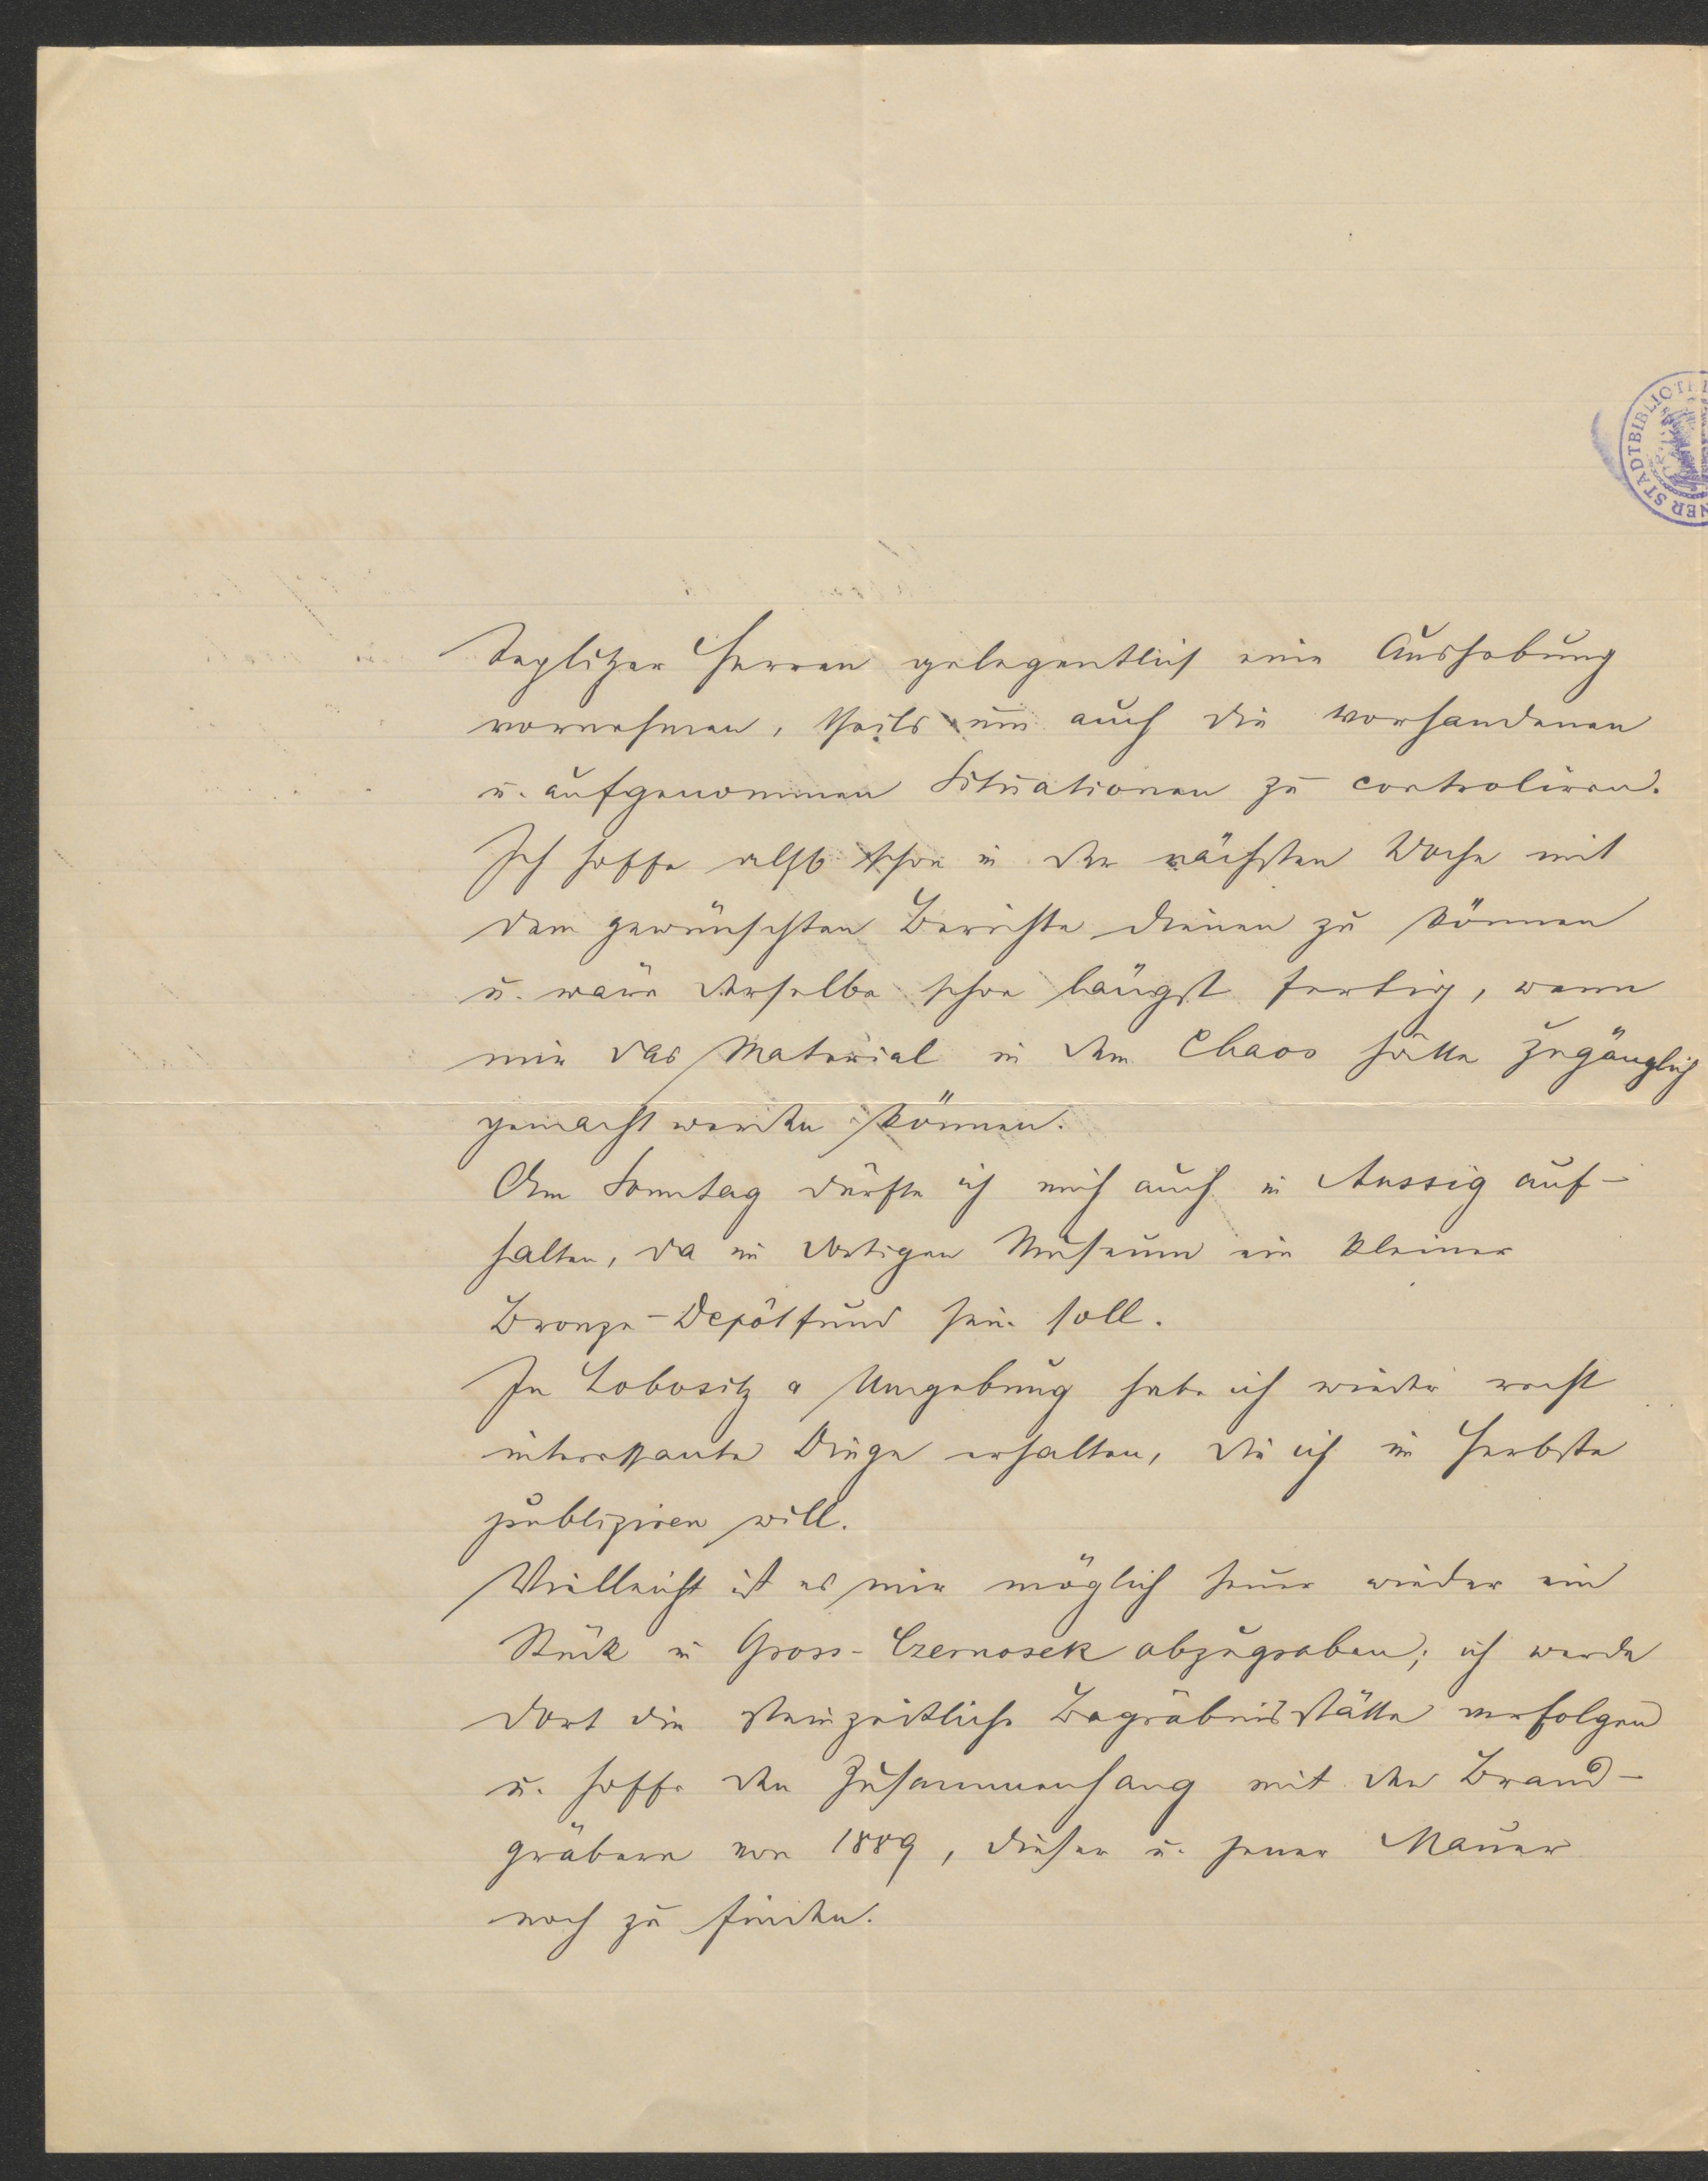 Teplitzer Herren gelegentlich eine Aushebung
vornehmen, theils um auch die vorhandenen
u. aufgenommen Situationen zu controliren.
Ich hoffe also schon in der nächsten Woche mit
dem gewünschten Berichte dienen zu können
u. wäre derselbe schon längst fertig, wenn
mir das Material in dem Chaos hätte zugänglich
gemacht werden können.
Am Sonntag dürfte ich mich auch in Aussig auf-
halten, da im dortigen Museum ein kleiner
Bronze-Depôtfund sein soll.
In Lobositz & Umgebung habe ich wieder recht
interessante Dinge erhalten, die ich im Herbste
publiziren will.
Vielleicht ist es mir möglich heuer wieder ein
Stück in Gross-Czernosek abzugraben; ich werde
dort die steinzeitliche Begräbnisstätte verfolgen
u. hoffe den Zusammenhang mit den Brand-
gräbern von 1889, dieser u. jener Mauer
noch zu finden.
NER STADTBIBLIOTH